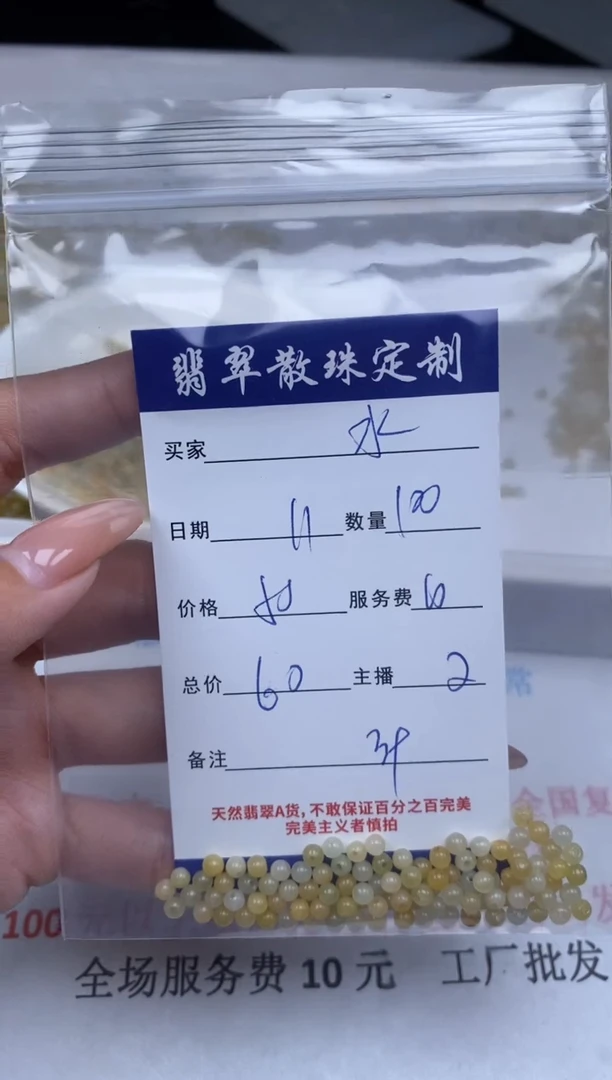 翡翠散珠定制
买家 水
日期 11 数量 100
价格 50 服务费 10
总价 60 主播 2
备注
天然翡翠A货,不敢保证百分之百完美
完美主义者慎拍
常
全国复
100
发
全场服务费10元 工厂批发